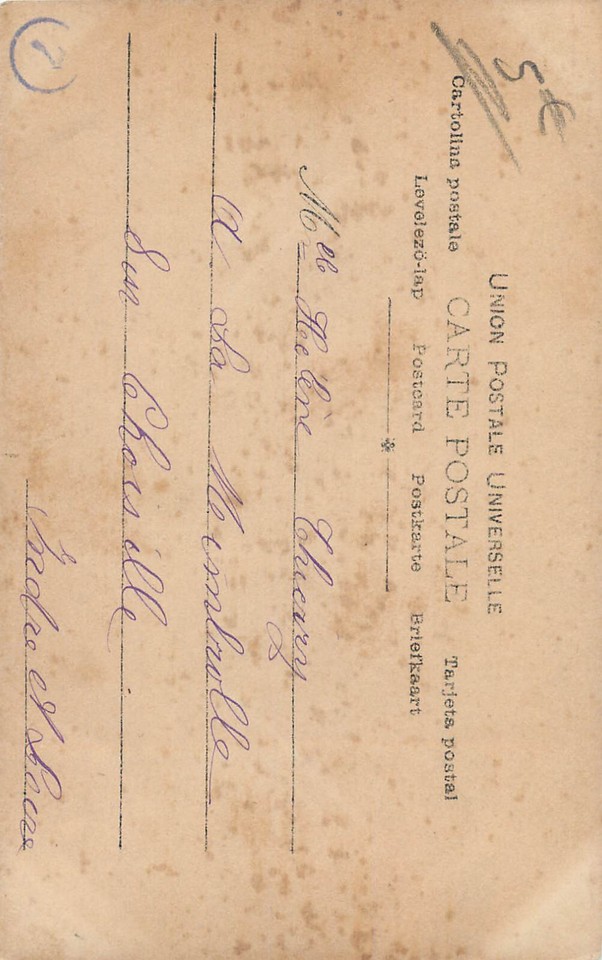 5 €
UNION POSTALE UNIVERSELLE
Cartolina postale CARTE POSTALE Tarjeta postal
Levelező-lap Postcard Postkarte Briefkaart
Mlle Helène Thierry
A La Membrolle
Sur Choisille
Indre et Loire